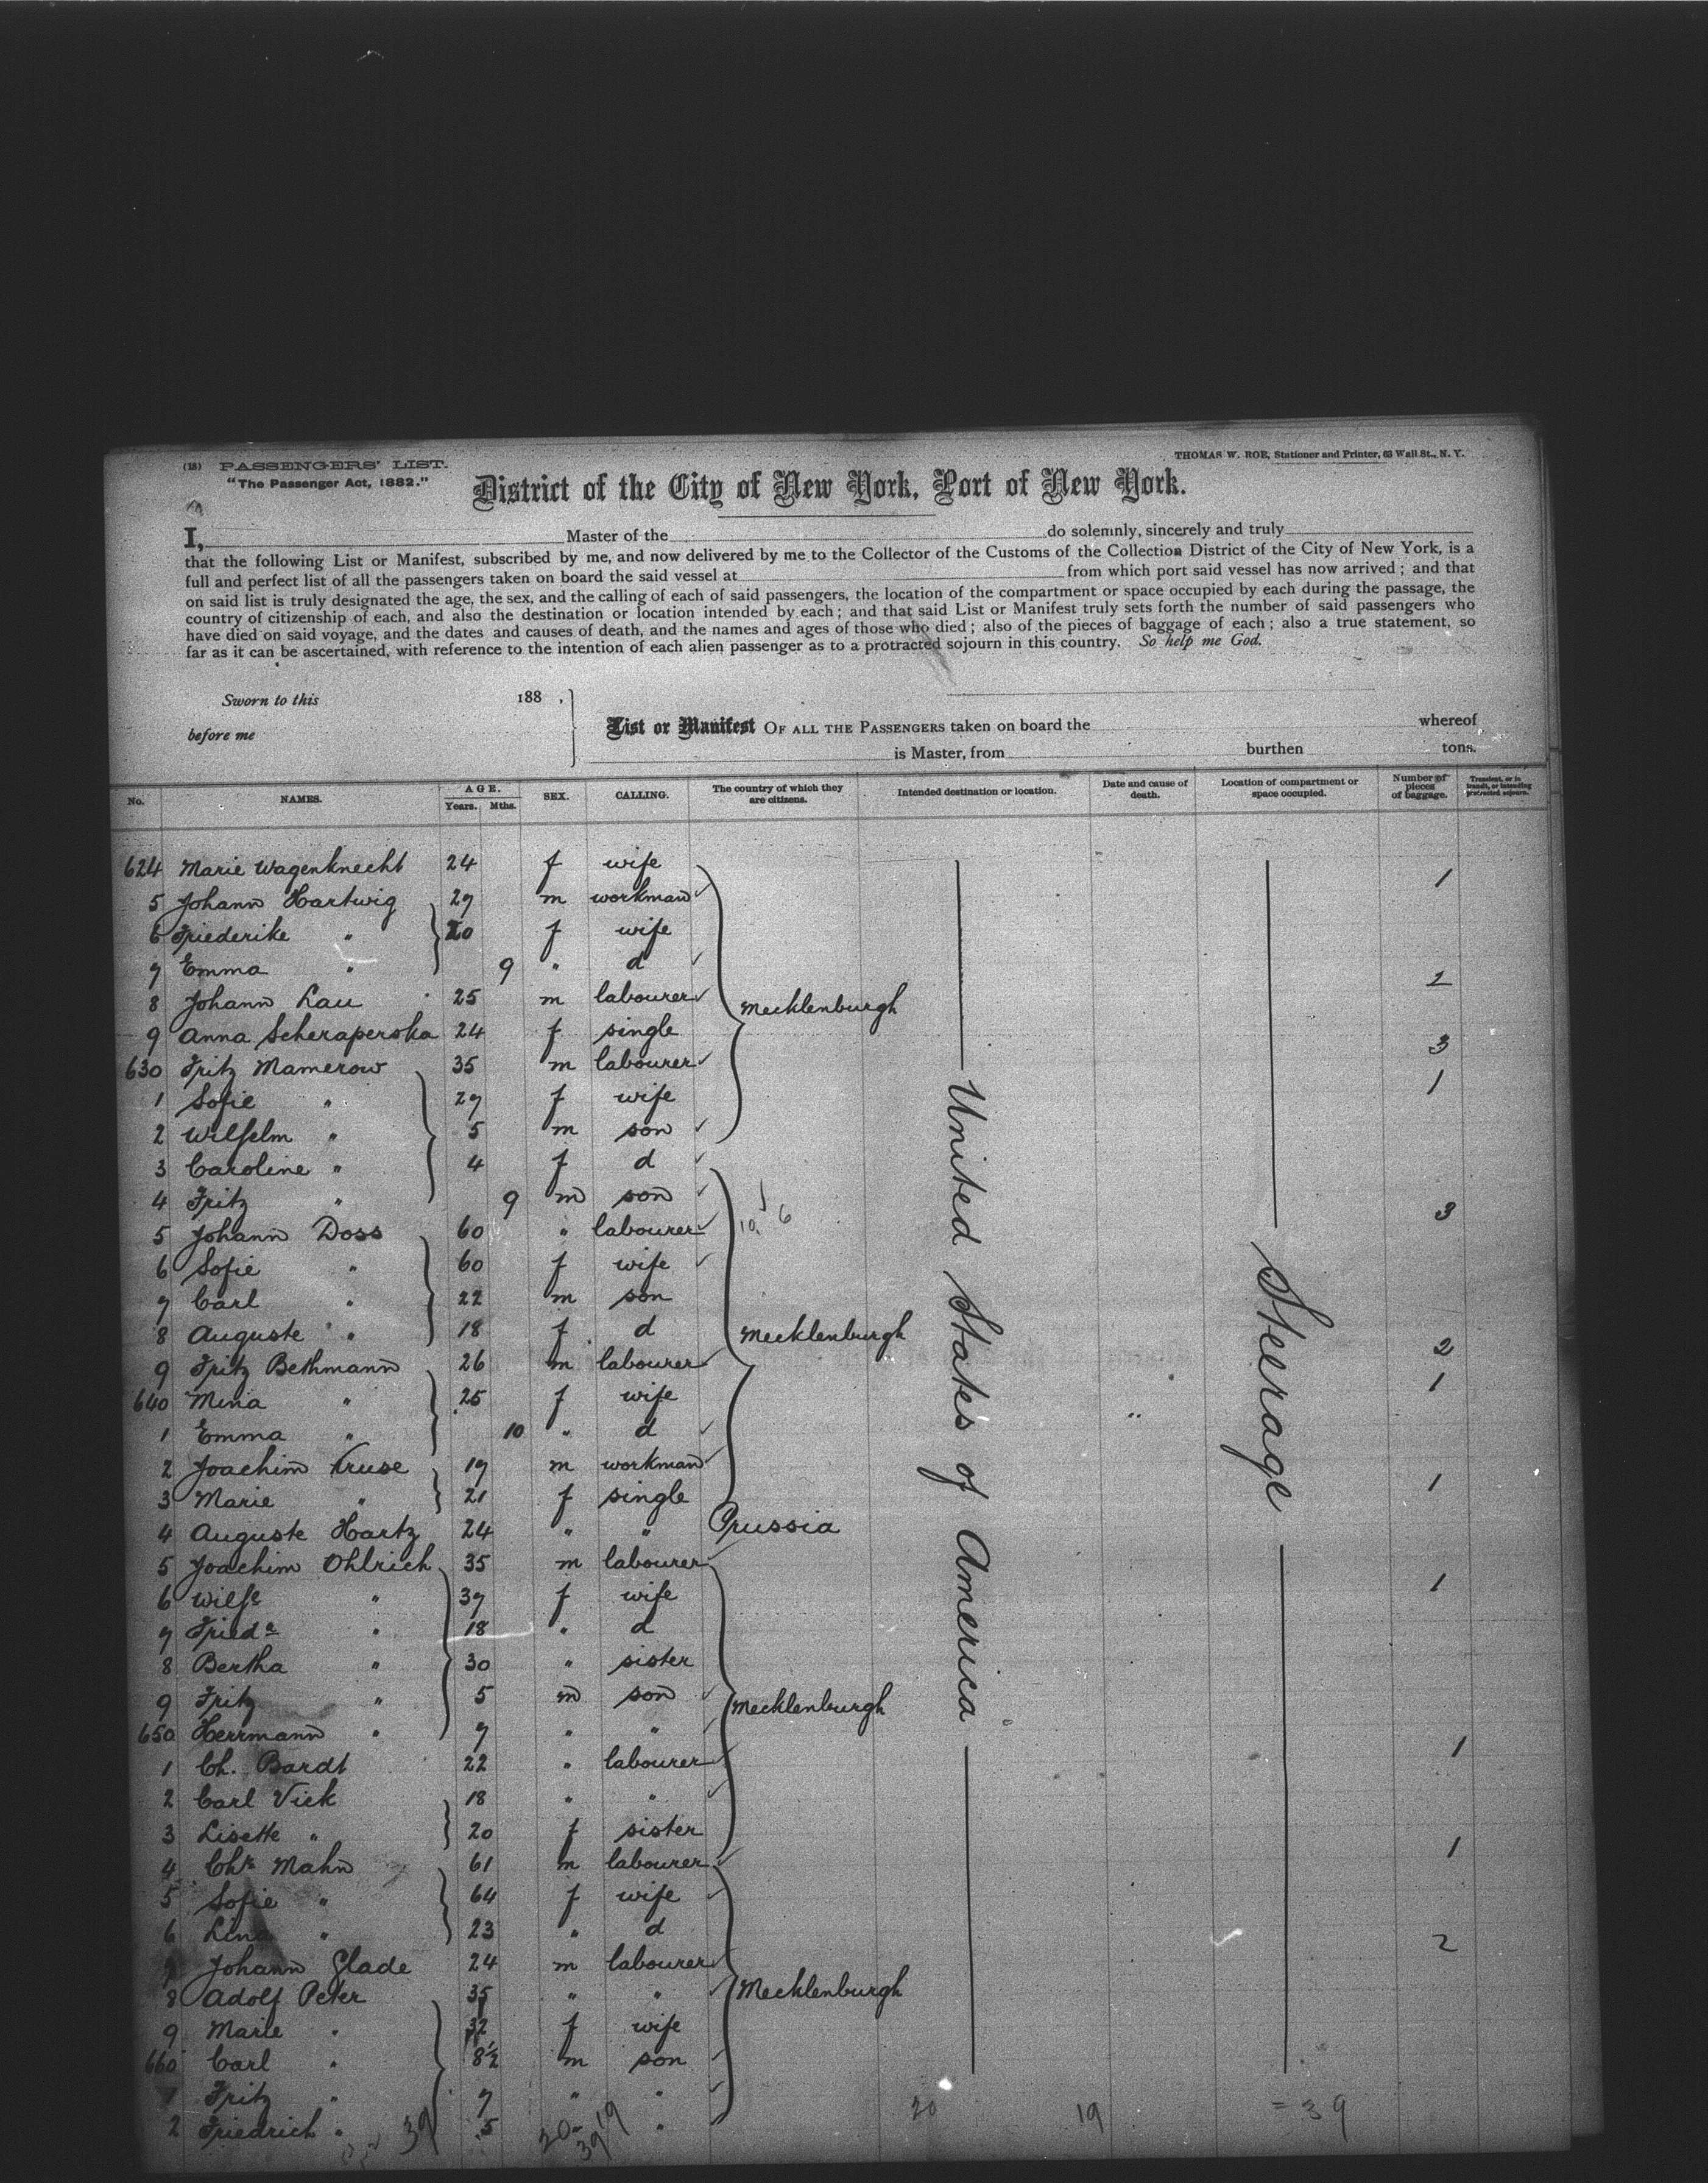 (18) PASSENGERS' LIST.
"The Passenger Act, 1882."
THOMAS W. ROE, Stationer and Printer, 63 Wall St., N. Y.
District of the City of New York, Port of New York.
I, Master of the do solemnly, sincerely and truly
that the following List or Manifest, subscribed by me, and now delivered by me to the Collector of the Customs of the Collection District of the City of New York, is a
full and perfect list of all the passengers taken on board the said vessel at from which port said vessel has now arrived; and that
on said list is truly designated the age, the sex, and the calling of each of said passengers, the location of the compartment or space occupied by each during the passage, the
country of citizenship of each, and also the destination or location intended by each; and that said List or Manifest truly sets forth the number of said passengers who
have died on said voyage, and the dates and causes of death, and the names and ages of those who died; also of the pieces of baggage of each; also a true statement, so
far as it can be ascertained, with reference to the intention of each alien passenger as to a protracted sojourn in this country. So help me God.
Sworn to this 188 ,
before me
List or Manifest OF ALL THE PASSENGERS taken on board the whereof
is Master, from burthen tons.
No. NAMES. AGE. Years. Mths. SEX. CALLING. The country of which they are citizens. Intended destination or location. Date and cause of death. Location of compartment or space occupied. Number of pieces of baggage. Transient, or in transit, or intending protracted sojourn.
624 Marie Wagenknecht 24 f wife 1
5 Johann Hartwig 27 m workman
6 Friederike " 20 f wife
7 Emma " 9 " d 2
8 Johann Lau 25 m labourer Mecklenburgh
9 Anna Scheraperska 24 f single 3
630 Fritz Mamerow 35 m labourer
1 Sofie " 27 f wife 1
2 Wilhelm " 5 m son
3 Caroline " 4 f d
4 Fritz " 9 m son
5 Johann Doss 60 " labourer 3
6 Sofie " 60 f wife
7 Carl " 22 m son
8 Auguste " 18 f d Mecklenburgh
9 Fritz Bethmann 26 m labourer 2
640 Mina " 25 f wife 1
1 Emma " 10 " d
2 Joachim Kruse 19 m workman
3 Marie " 21 f single 1
4 Auguste Hartz 24 " " Prussia
5 Joachim Ohlrich 35 m labourer
6 Wilhe " 37 f wife 1
7 Friede " 18 " d
8 Bertha " 30 " sister
9 Fritz " 5 m son Mecklenburgh
650 Herrmann " 7 " "
1 Ch. Bardt 22 " labourer 1
2 Carl Vick 18 " "
3 Lisette " 20 f sister
4 Chr Mahn 61 m labourer 1
5 Sofie " 64 f wife
6 Lina " 23 " d
7 Johann Glade 24 m labourer 2
8 Adolf Peter 35 " " Mecklenburgh
9 Marie " 32 f wife
660 Carl " 8 1/2 m son
1 Fritz " 7 " "
2 Friedrich " 5 "
United States of America
Steerage
39 20 19 39
20 19 = 39